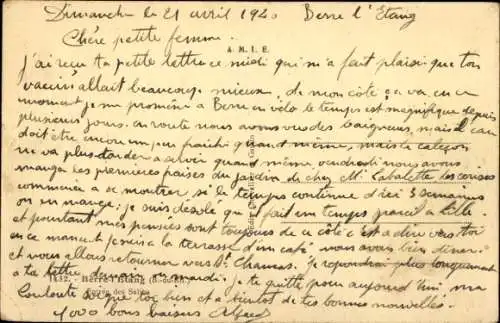 Dimanche le 21 avril 1940 Berre l'Etang
Chère petite femme.
A. M. I. E.
j'ai reçu ta petite lettre ce midi qui m'a fait plaisir que ton
vaccin allait beaucoup mieux, de mon côté ça va, en ce
moment je me promène à Berre en vélo le temps est magnifique depuis
plusieurs jours. en route nous avons vus des baigneurs, mais l'eau
doit être encore un peu fraiche quand même, mais le caleçon
ne va plus tarder à avoir quand même vendredi nous avons
mangé les premières fraises du jardin de chez Mr Cabalette les cerises
commence a se montrer si le temps continue d'ici 3 semaines
on en mange; je suis désolé qu'il fait un temps pareil a Lille
et pourtant mes pensées sont toujours de ce côté c'est a dire vers toi
en ce moment je suis a la terrasse d'un café nous avons bien diner
et nous allons retourner vers St Chamas. Je repondrai plus longuement
a ta lettre demain ou mardi, je te quitte pour aujourd'hui ma
1132. - Berre-l'Etang (B.-du-Rh.)
Louloute soigne toi bien et a bientôt de tes bonnes nouvelles.
des Salins
1000 bons baisers Alfred